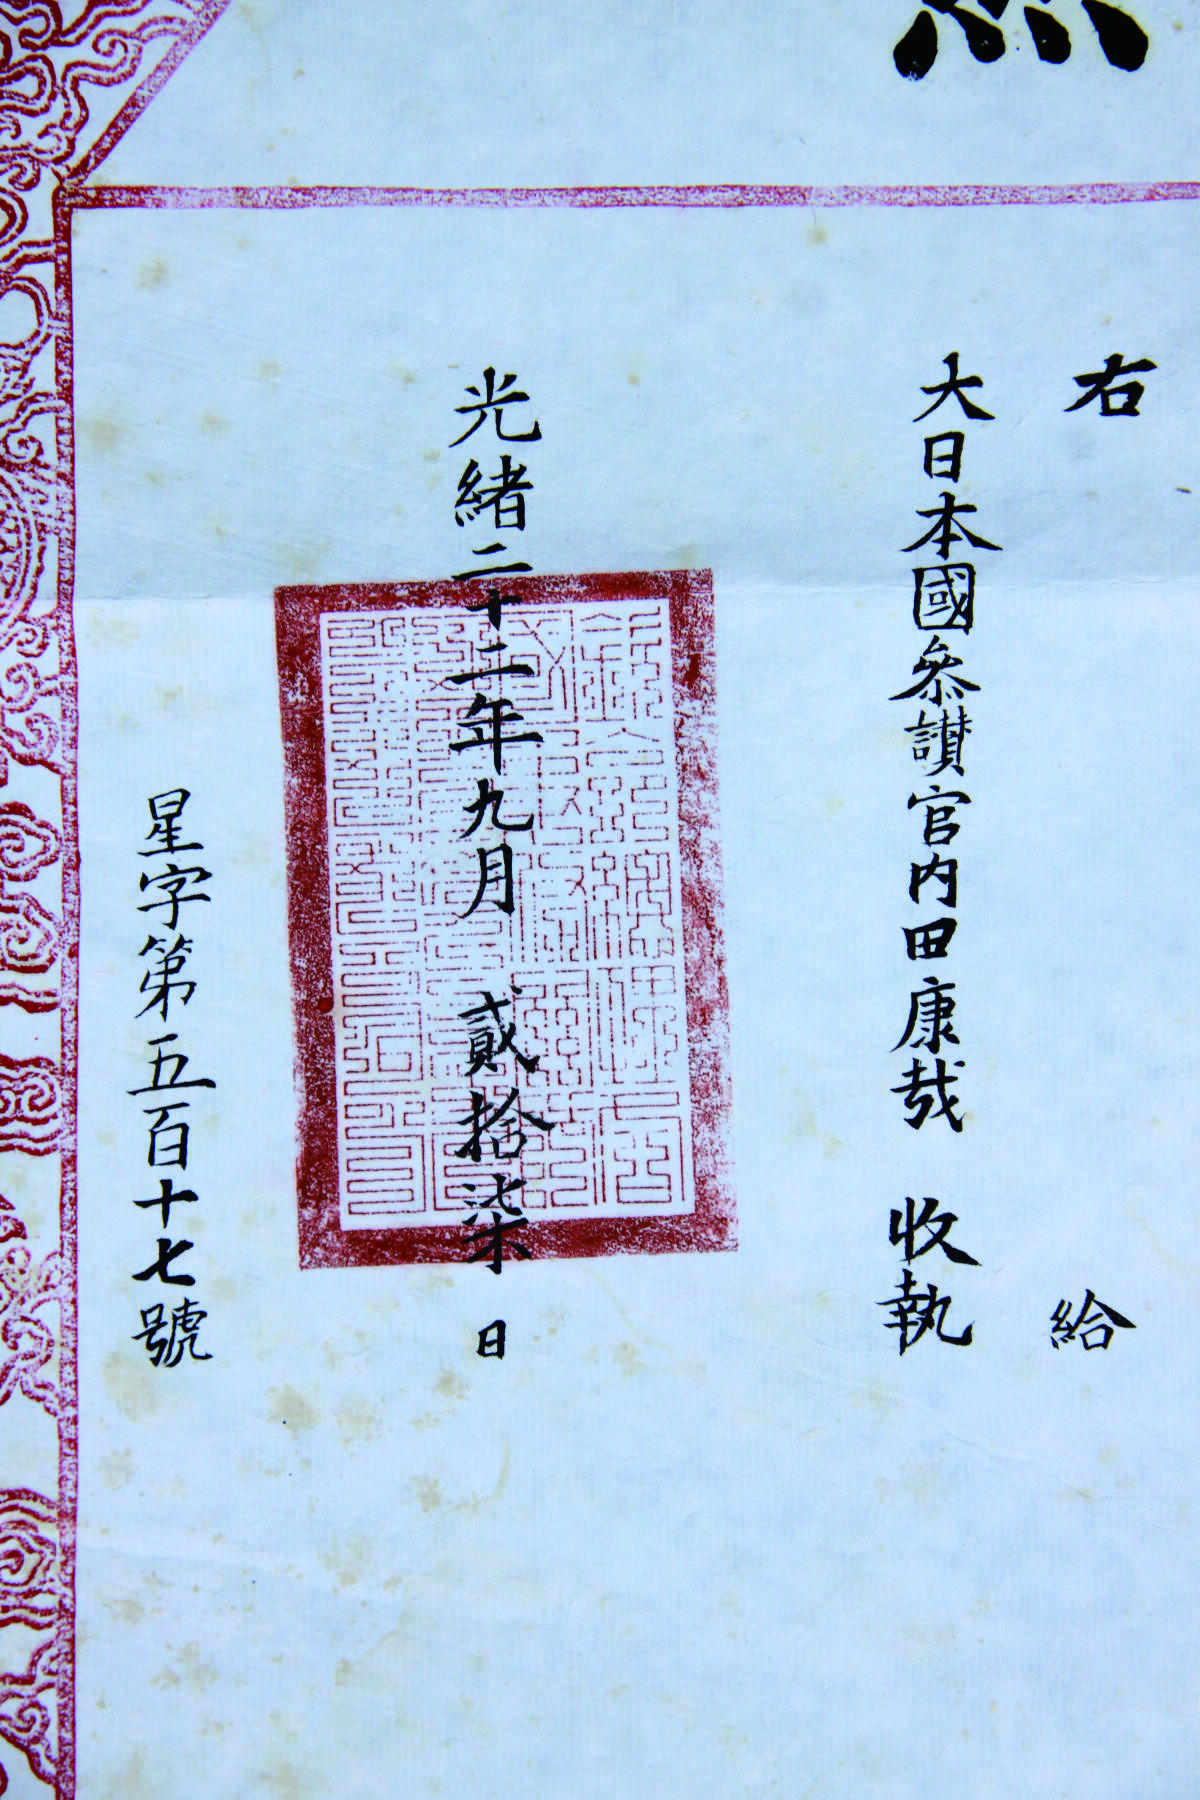 右 給
大日本國叅讃官內田康哉 收執
光緒二十二年九月 貳拾柒 日
星字第五百十七號